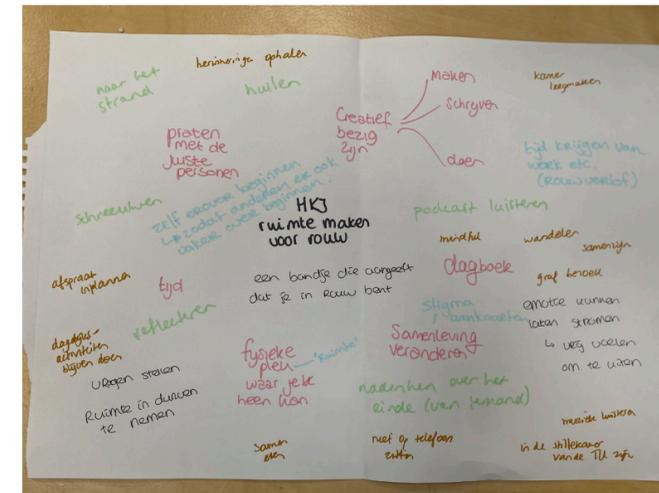 naar het
strand
herinneringen ophalen
huilen
Maken
schrijven
doen
Creatief
bezig
zijn
kamer
leegmaken
praten
met de
juiste
personen
tijd krijgen van
werk etc.
(rouwverlof)
schreeuwen
zelf erover beginnen
↳ zodat anderen er ook
vaker over beginnen.
HKJ
ruimte maken
voor rouw
podcast luisteren
mindful
wandelen
samenzijn
afspraak
inplannen
tijd
een bandje die aangeeft
dat je in rouw bent
dagboek
graf bezoek
reflecteren
stigma
aankaarten
emotie kunnen
laten stromen
↳ vrij voelen
om te uiten
activiteiten
blijven doen
vragen stellen
Ruimte in durven
te nemen
fysieke
plek
"Ruimte"
waar je
heen kan
Samenleving
veranderen
nadenken over het
einde (van iemand)
muziek luisteren
samen
eten
niet op telefoon
zitten
in de stiltekamer
van de TU zijn